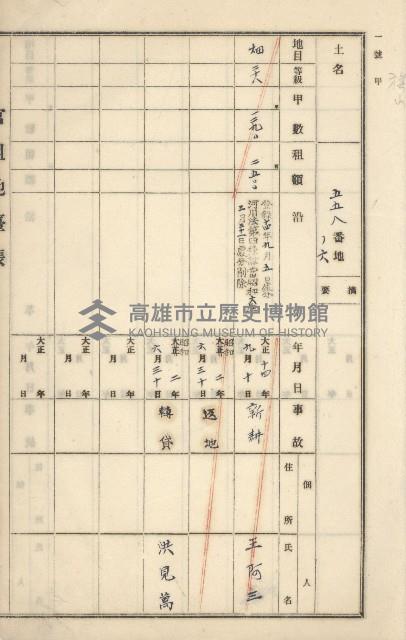 一號甲
土名
五五八番地ノ六
摘要
地目
等級
甲數
租額
沿
畑
二八
一三九〇
二五〇
登錄
年九月五日
河川法第四
當昭和
三月三十一日
削除
年月日
事故
個人
住所
氏名
大正十四年
九月十日
新耕
王阿三
昭和
大正二年
六月三十日
返地
昭和
大正二年
六月三十日
轉貸
洪見萬
大正年
月日
大正年
月日
大正年
月日
官租地臺帳
高雄市立歷史博物館
KAOHSIUNG MUSEUM OF HISTORY